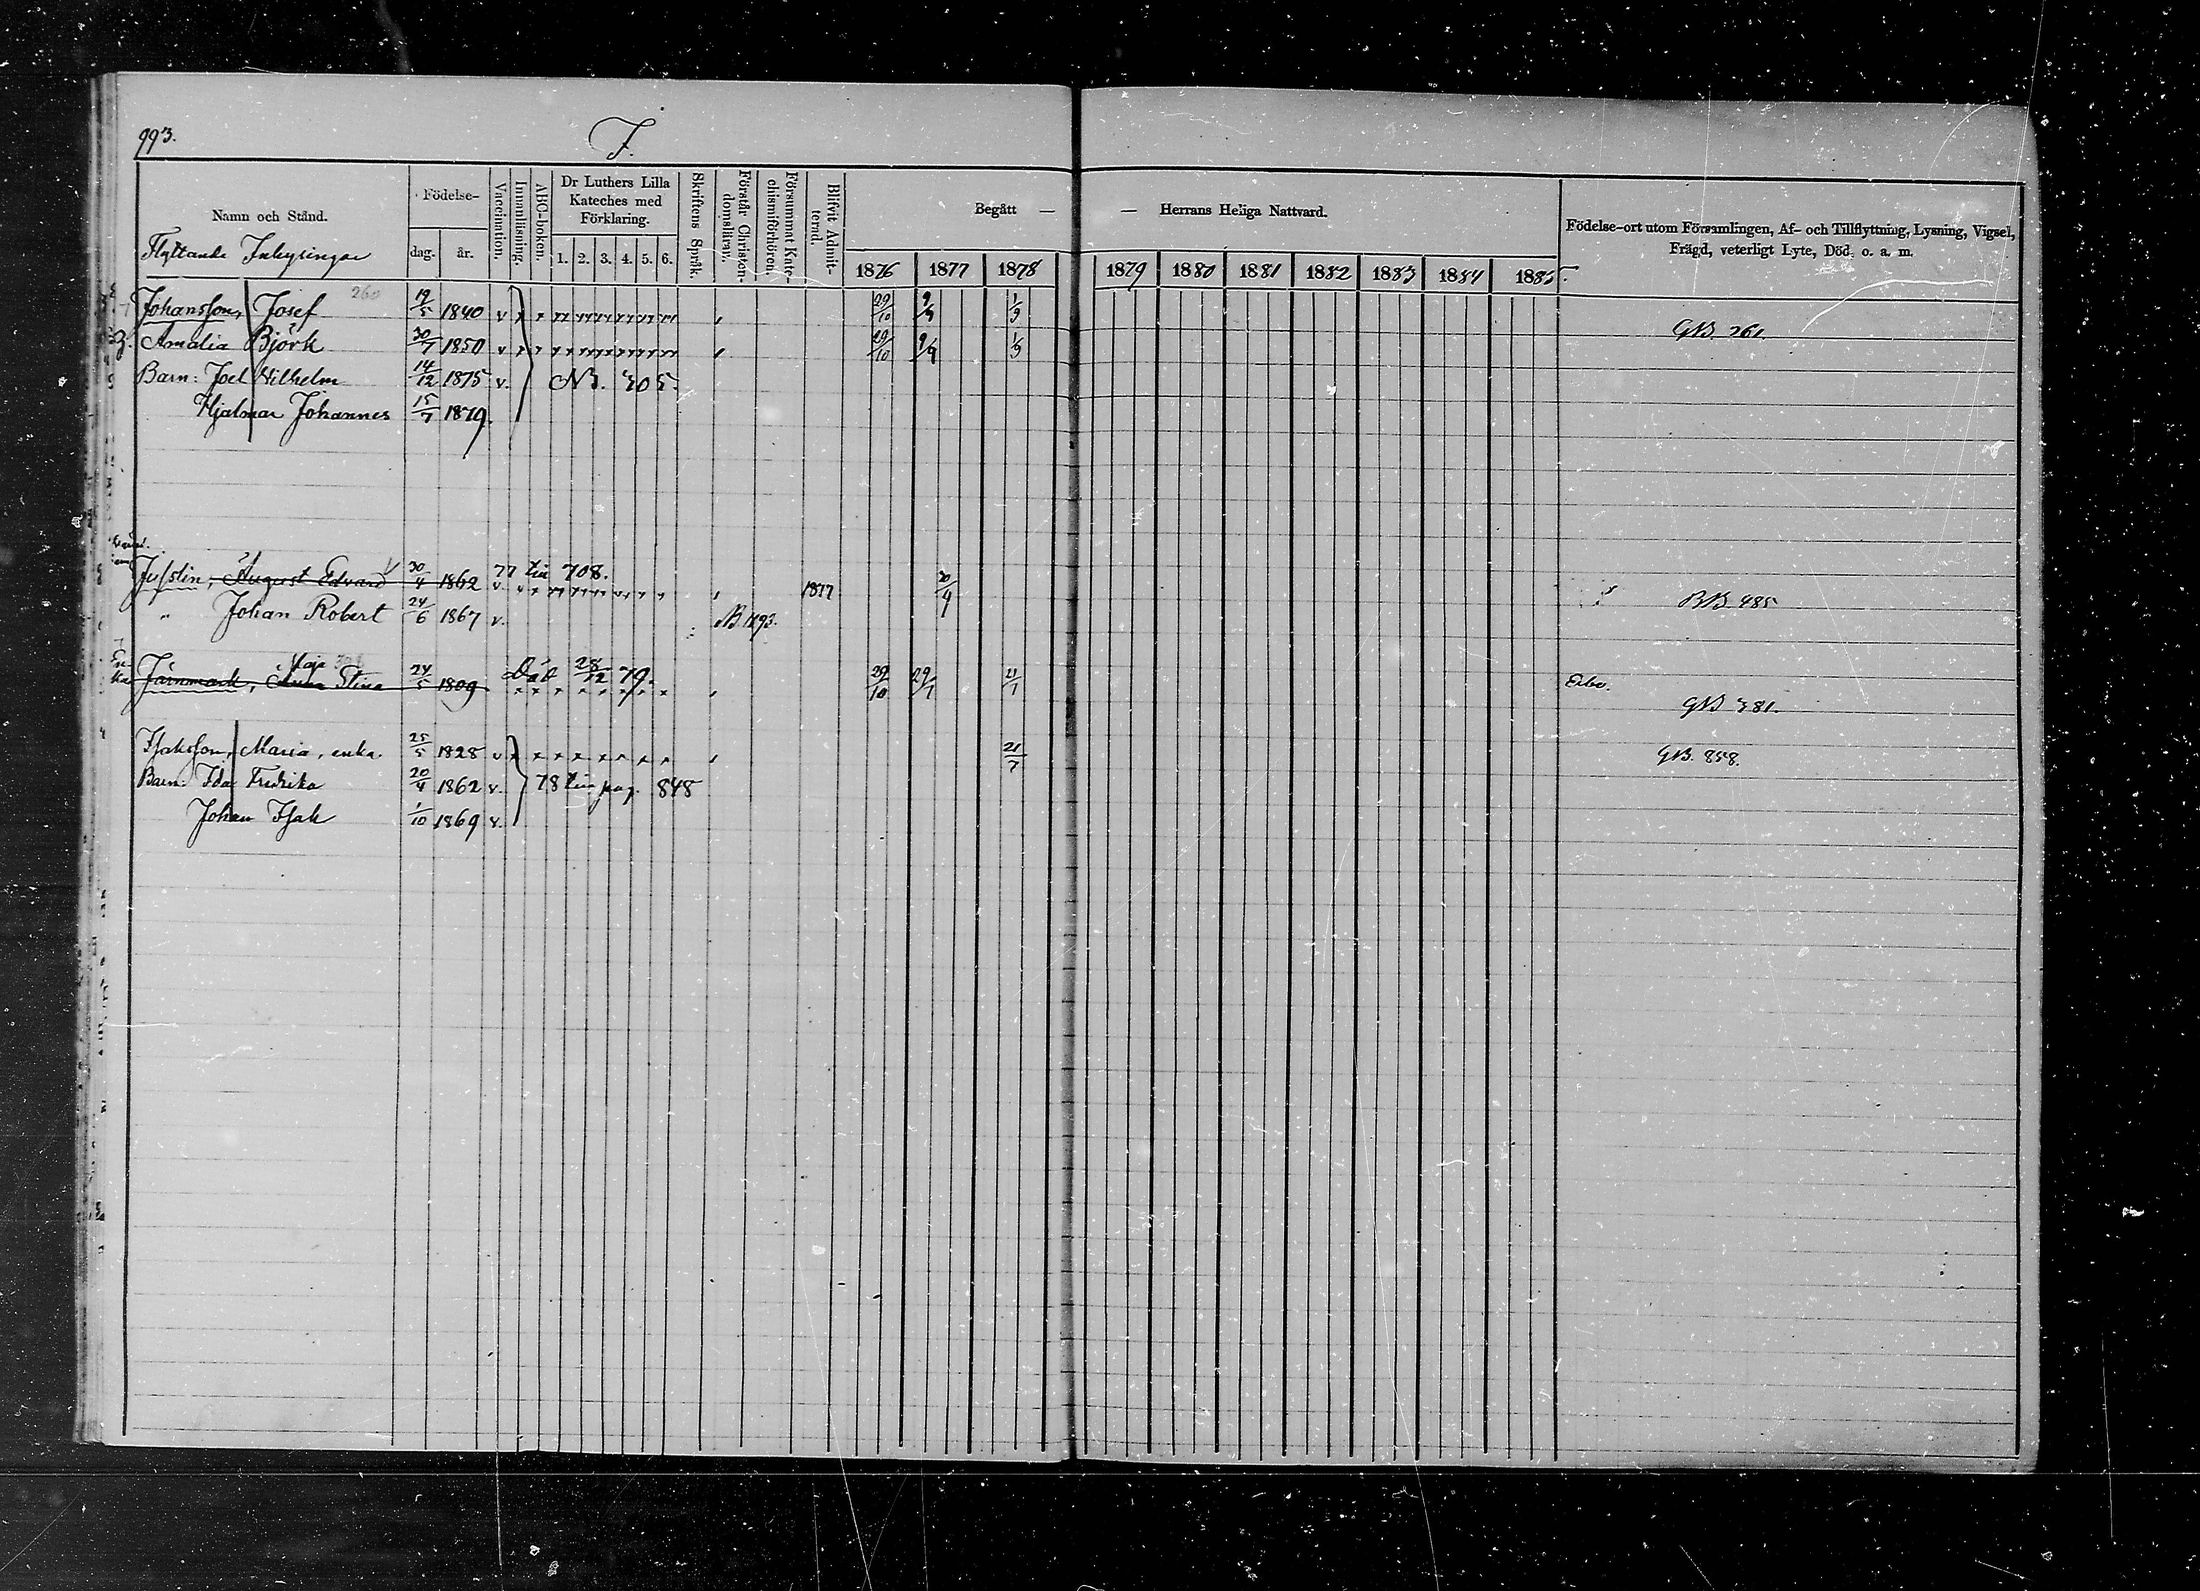 993.
J.
Namn och Stånd.
Flyttande Inhysingar
Födelse-
dag. år.
Vaccination.
Innanläsning.
ABC-boken.
Dr Luthers Lilla Kateches med Förklaring.
1. 2. 3. 4. 5. 6.
Skriftens Språk.
Förstår Christendomslärav.
Försummat Katechismiförhören.
Blifvit Admitternd.
Begått — — Herrans Heliga Nattvard.
1876 1877 1878 1879 1880 1881 1882 1883 1884 1885
Födelse-ort utom Församlingen, Af- och Tillflyttning, Lysning, Vigsel,
Frägd, veterligt Lyte, Död. o. a. m.
Johansson, Josef 260 19/5 1840 v 29/10 9/9 1/9 GB. 261.
Amalia Björk 30/7 1850 v 29/10 9/9 1/9
Barn: Joel Vilhelm 14/12 1875 v. NB. 305.
Hjalmar Johannes 15/7 1879.
Justin, August Edvard 30/4 1862 v. 77 till 708. 1877 30/9 BB. 485
" Johan Robert 24/6 1867 v. NB 1293.
Enka Järnmark, Anna Maja Stina 24/5 1809 Död 28/12 79. 29/10 29/7 21/7 Esbo.
GB 381.
Isaksson, Maria, enka 25/5 1828 v 21/7 GB. 858.
Barn: Ida Fredrika 20/4 1862 v. 78 till pag. 848
Johan Isak 1/10 1869 v.